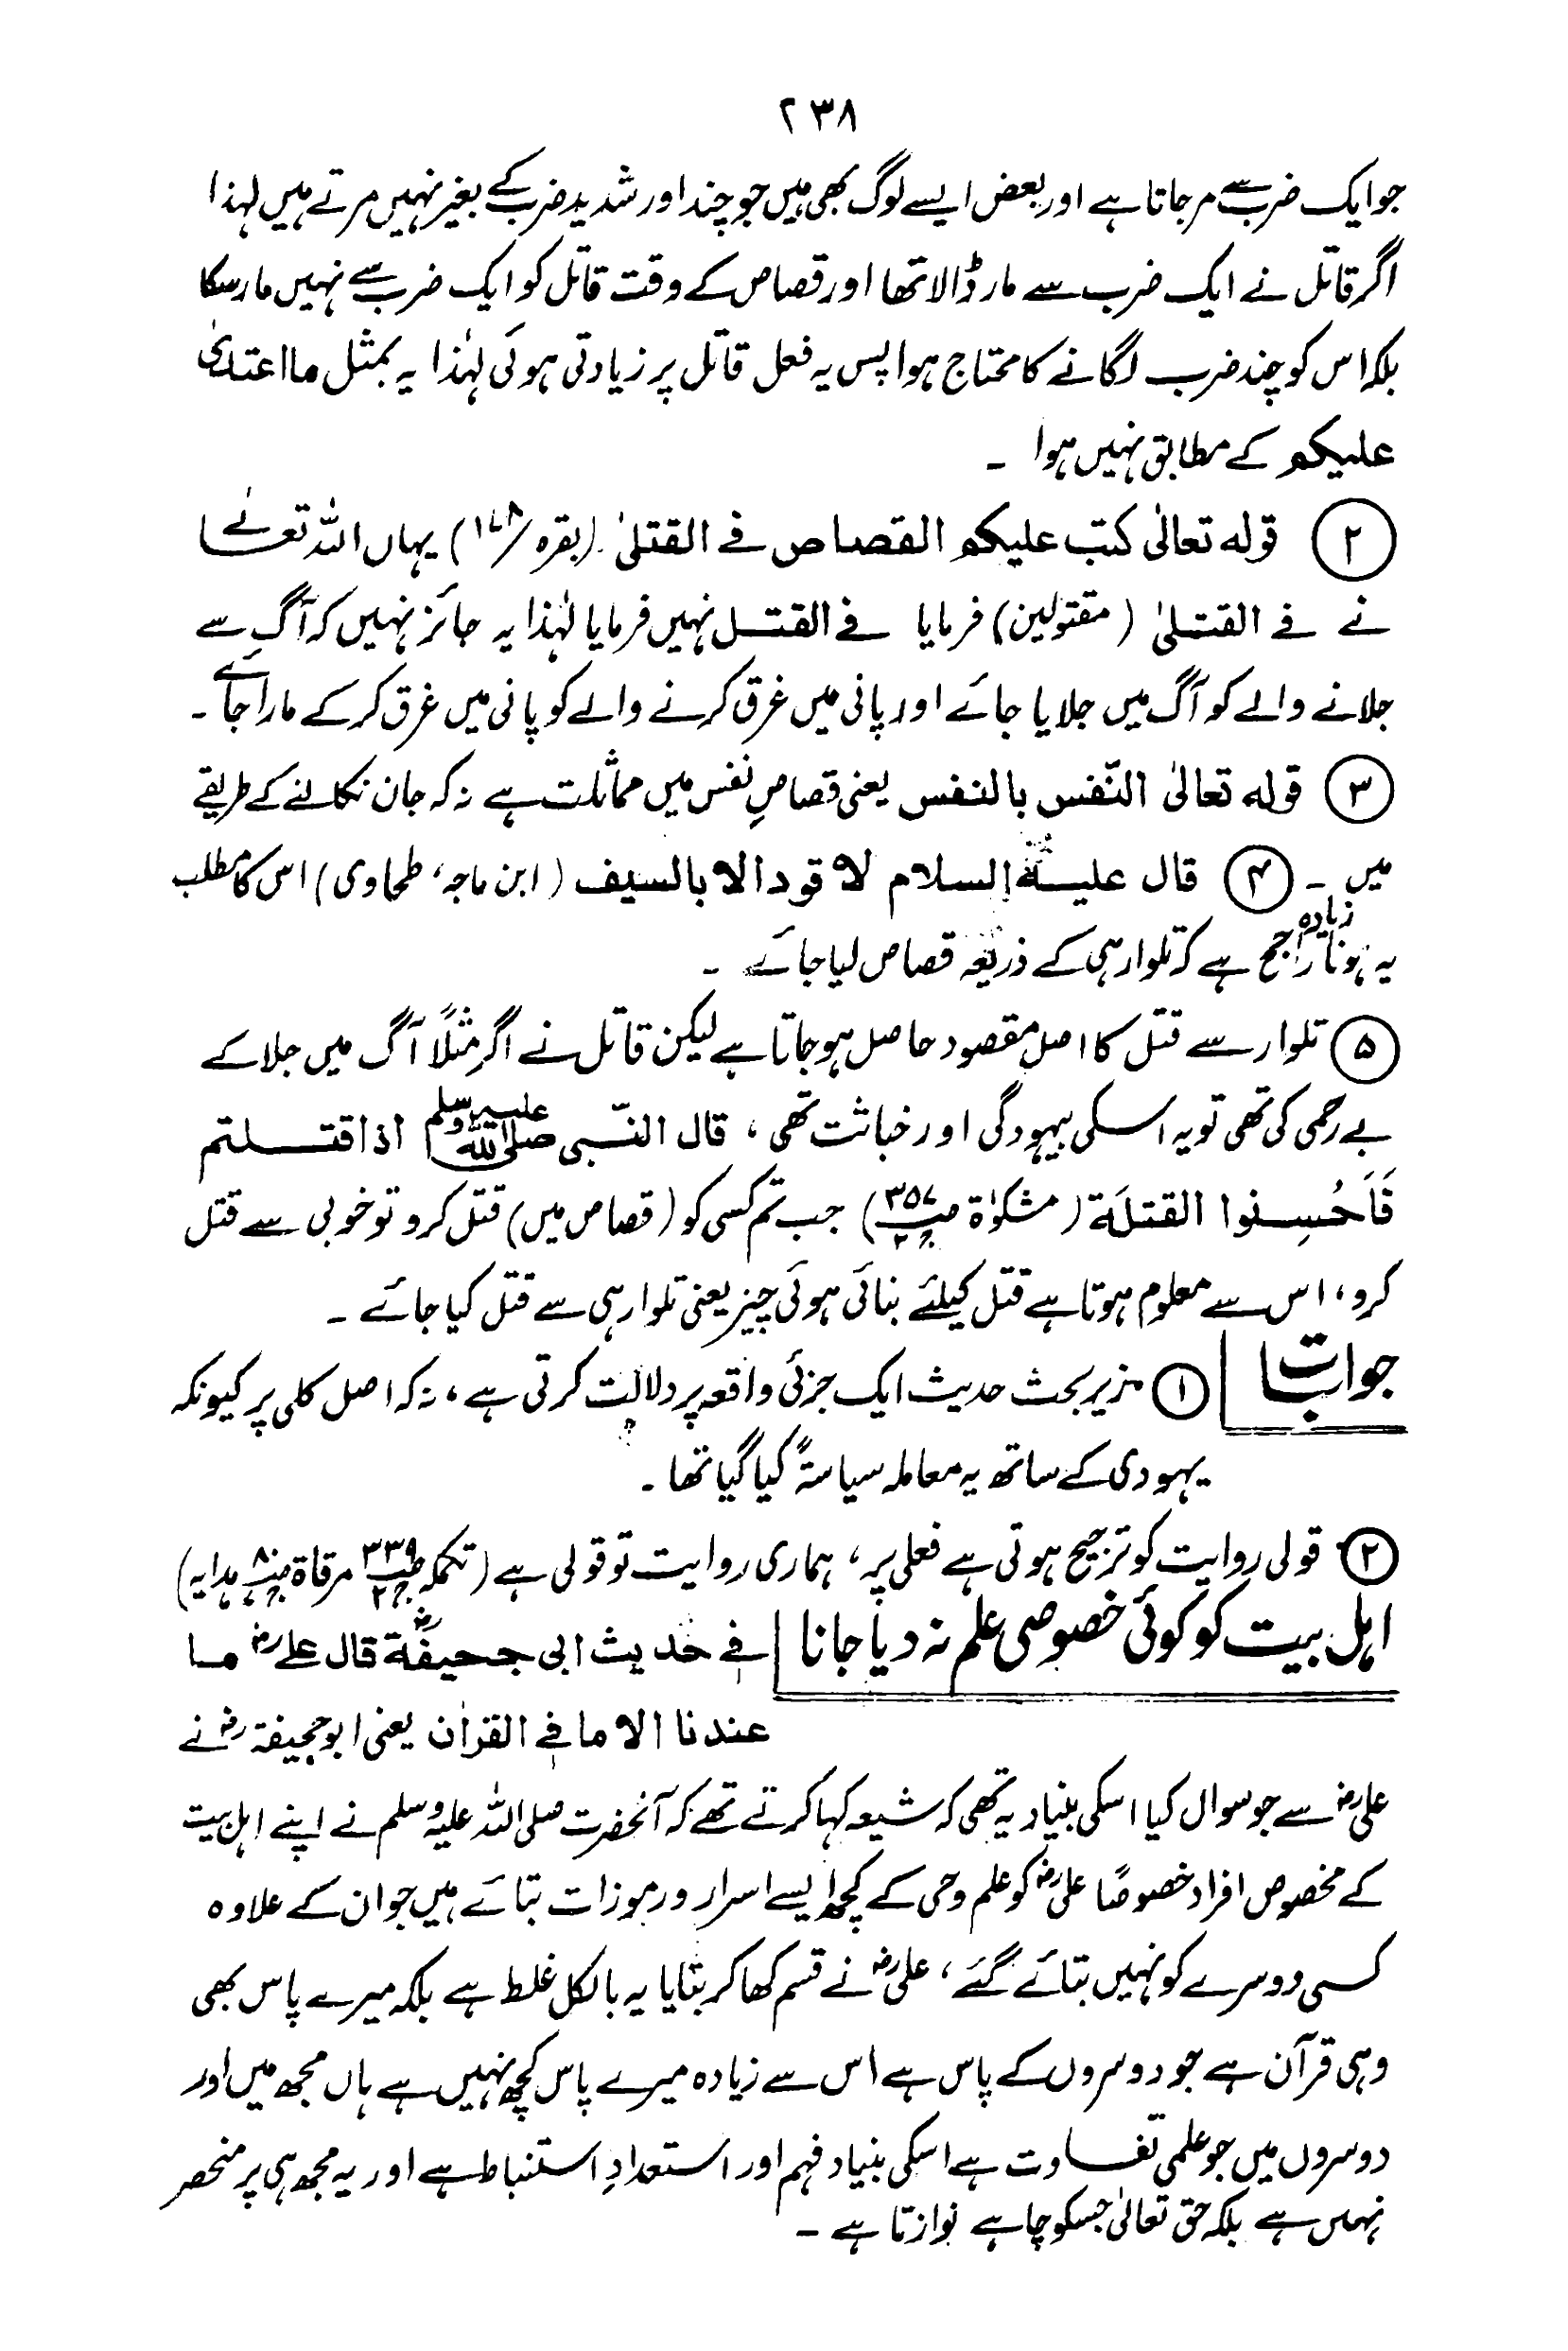 ۲۳۸
جو ایک ضرب سے مرجاتا ہے اور بعض ایسے لوگ بھی ہیں جو چند اور شدید ضرب کے بغیر نہیں مرتے ہیں لہذا
اگر قاتل نے ایک ضرب سے مار ڈالا تھا اور قصاص کے وقت قاتل کو ایک ضرب سے نہیں مار سکا
بلکہ اس کو چند ضرب لگانے کا محتاج ہوا پس یہ فعل قاتل پر زیادتی ہوئی لہٰذا یہ بمثل ما اعتدیٰ
علیکم کے مطابق نہیں ہوا ۔
② قوله تعالیٰ کتب علیکم القصاص فے القتلیٰ (بقرہ/۱۷۸) یہاں اللہ تعالےٰ
نے فے القتلیٰ (مقتولین) فرمایا فے القتل نہیں فرمایا لہٰذا یہ جائز نہیں کہ آگ سے
جلانے والے کو آگ میں جلایا جائے اور پانی میں غرق کرنے والے کو پانی میں غرق کر کے مارا جائے ۔
③ قوله تعالیٰ النّفس بالنفس یعنی قصاصِ نفس میں مماثلت ہے نہ کہ جان نکالنے کے طریقے
میں ۔ ④ قال علیہ السلام لا قود الا بالسیف (ابن ماجہ، طحاوی) اس کا مطلب
یہ ہونا زیادہ راجح ہے کہ تلوار ہی کے ذریعہ قصاص لیا جائے ۔
⑤ تلوار سے قتل کا اصل مقصود حاصل ہوجاتا ہے لیکن قاتل نے اگر مثلًا آگ میں جلا کے
بے رحمی کی تھی تو یہ اسکی بیہودگی اور خباثت تھی ، قال النّبی صلی اللہ علیہ وسلم اذا قتلتم
فَاَحُسِنوا القتلَة (مشکوٰة ص۳۵۷ ج۲) جب تم کسی کو (قصاص میں) قتل کرو تو خوبی سے قتل
کرو، اس سے معلوم ہوتا ہے قتل کیلئے بنائی ہوئی چیز یعنی تلوار ہی سے قتل کیا جائے ۔
جوابات ① زیر بحث حدیث ایک جزئی واقعہ پر دلالت کرتی ہے، نہ کہ اصل کلی پر کیونکہ
یہودی کے ساتھ یہ معاملہ سیاسةً کیا گیا تھا ۔
② قولی روایت کو ترجیح ہوتی ہے فعلی پر، ہماری روایت تو قولی ہے (تکملہ ص۳۳۹ ج۲ مرقاة ہدایہ)
اہل بیت کو کوئی خصوصی علم نہ دیا جانا فے حدیث ابی جحیفةؓ قال علیؓ ما
عندنا الا ما فے القراٰن یعنی ابو جحیفةؓ نے
علیؓ سے جو سوال کیا اسکی بنیاد یہ تھی کہ شیعہ کہا کرتے تھے کہ آنحضرت صلی اللہ علیہ وسلم نے اپنے اہل بیت
کے مخصوص افراد خصوصًا علیؓ کو علم وحی کے کچھ ایسے اسرار ورموزات بتائے ہیں جو ان کے علاوہ
کسی دوسرے کو نہیں بتائے گئے ، علیؓ نے قسم کھا کر بتایا یہ بالکل غلط ہے بلکہ میرے پاس بھی
وہی قرآن ہے جو دوسروں کے پاس ہے اس سے زیادہ میرے پاس کچھ نہیں ہے ہاں مجھ میں اور
دوسروں میں جو علمی تفاوت ہے اسکی بنیاد فہم اور استعدادِ استنباط ہے اور یہ مجھ ہی پر منحصر
نہیں ہے بلکہ حق تعالیٰ جسکو چاہے نوازتا ہے ۔